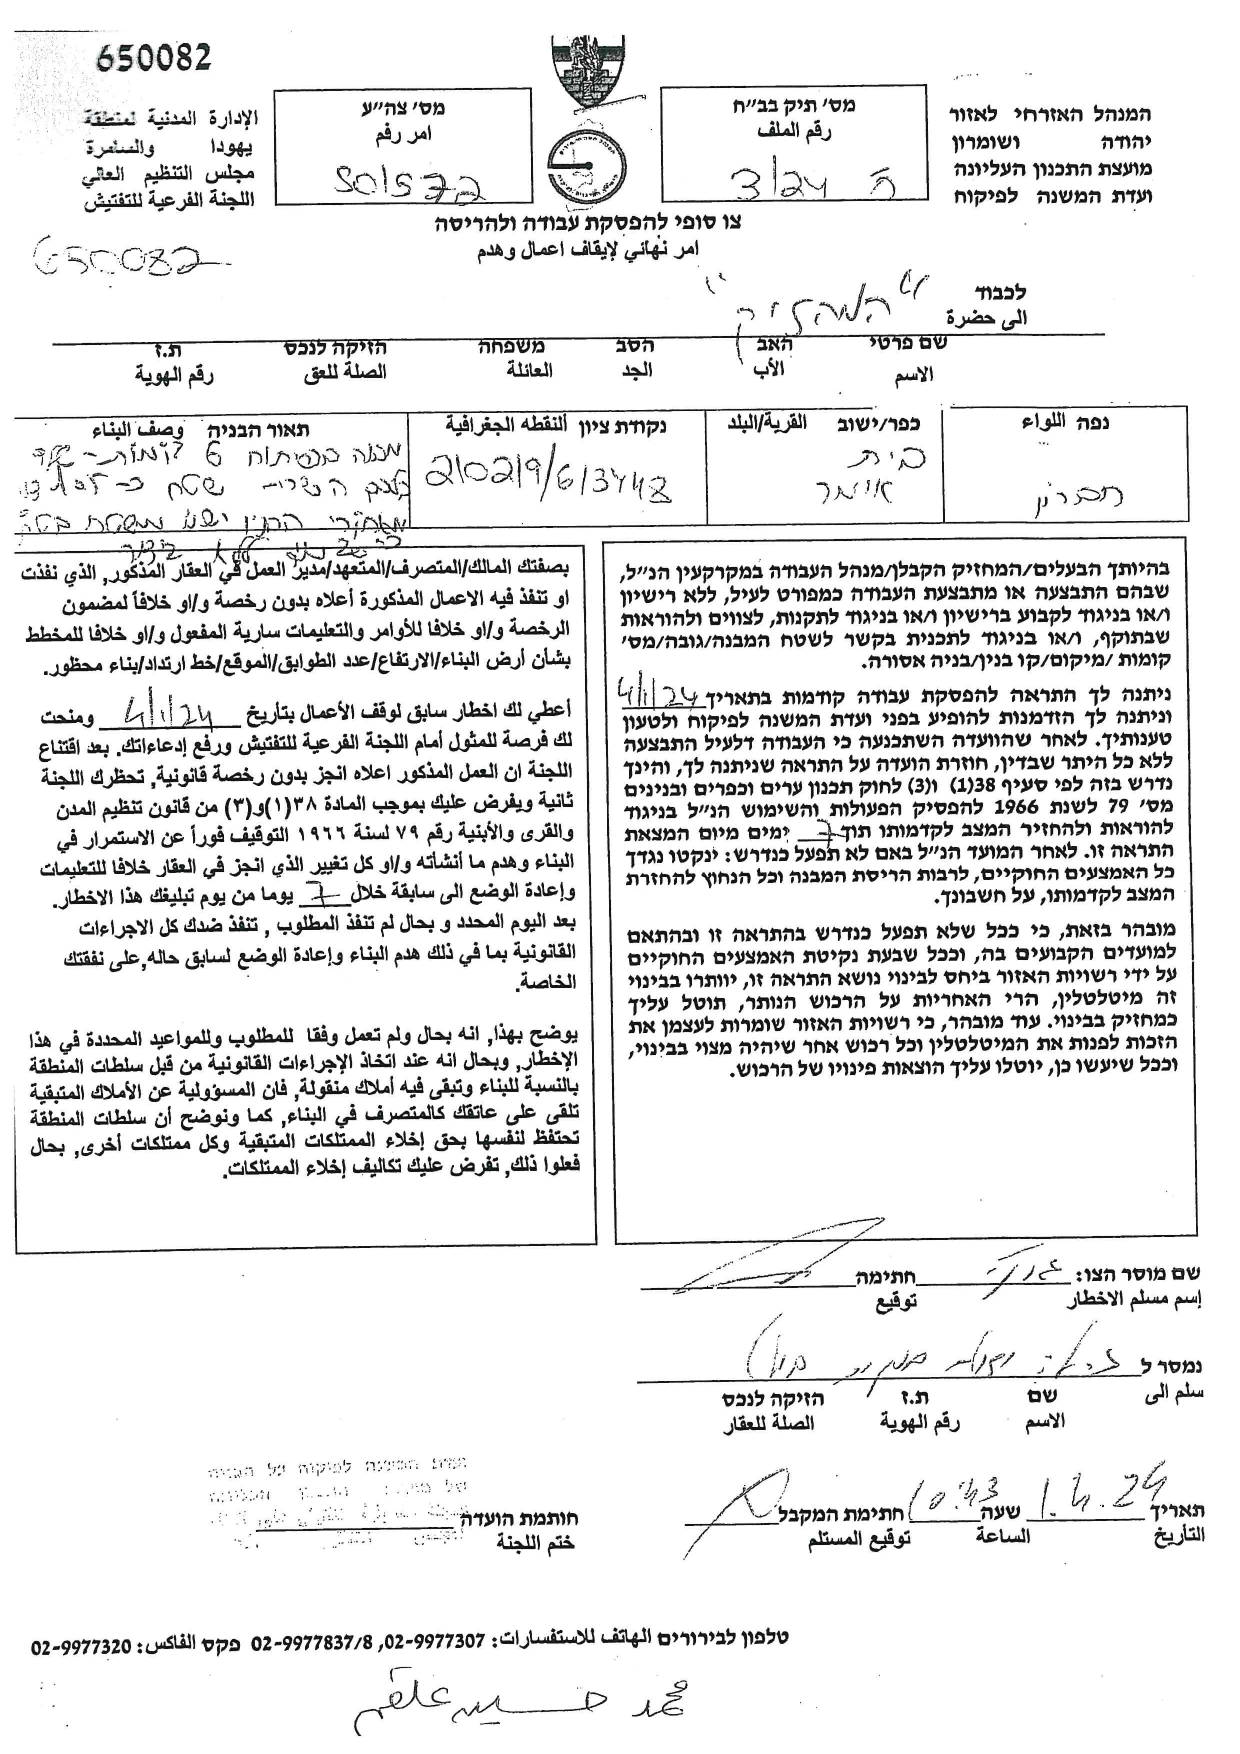 650082
המנהל האזרחי לאזור
יהודה ושומרון
מועצת התכנון העליונה
ועדת המשנה לפיקוח
מס׳ תיק בב״ח
رقم الملف
ה 3/24
מס׳ צה״ע
امر رقم
50/522
الإدارة المدنية لمنطقة
يهودا والسامرة
مجلس التنظيم العالي
اللجنة الفرعية للتفتيش
צו סופי להפסקת עבודה ולהריסה
امر نهائي لإيقاف اعمال وهدم
650082
לכבוד
الى حضرة
"המחזיק"
שם פרטי האב הסב משפחה הזיקה לנכס ת.ז
الاسم الأب الجد العائلة الصلة للعق رقم الهوية
נפה اللواء
חברון
כפר/ישוב القرية/البلد
בית
אומר
נקודת ציון ألنقطه الجغرافية
210219/613448
תאור הבניה وصف البناء
מבנה 6 קומות
שטח כ-
בהיותך הבעלים/המחזיק הקבלן/מנהל העבודה במקרקעין הנ״ל,
שבהם התבצעה או מתבצעת העבודה כמפורט לעיל, ללא רישיון
ו/או בניגוד לקבוע ברישיון ו/או בניגוד לתקנות, לצווים ולהוראות
שבתוקף, ו/או בניגוד לתכנית בקשר לשטח המבנה/גובה/מס׳
קומות /מיקום/קו בנין/בניה אסורה.
ניתנה לך התראה להפסקת עבודה קודמות בתאריך 4/1/24
וניתנה לך הזדמנות להופיע בפני ועדת המשנה לפיקוח ולטעון
טענותיך. לאחר שהוועדה השתכנעה כי העבודה דלעיל התבצעה
ללא כל היתר שבדין, חוזרת הועדה על התראה שניתנה לך, והינך
נדרש בזה לפי סעיף 38(1) ו(3) לחוק תכנון ערים וכפרים ובנינים
מס׳ 79 לשנת 1966 להפסיק הפעולות והשימוש הנ״ל בניגוד
להוראות ולהחזיר המצב לקדמותו תוך 7 ימים מיום המצאת
התראה זו. לאחר המועד הנ״ל באם לא תפעל כנדרש: ינקטו נגדך
כל האמצעים החוקיים, לרבות הריסת המבנה וכל הנחוץ להחזרת
המצב לקדמותו, על חשבונך.
מובהר בזאת, כי ככל שלא תפעל כנדרש בהתראה זו ובהתאם
למועדים הקבועים בה, וככל שבעת נקיטת האמצעים החוקיים
על ידי רשויות האזור ביחס לבינוי נושא התראה זו, יוותרו בבינוי
זה מיטלטלין, הרי האחריות על הרכוש הנותר, תוטל עליך
כמחזיק בבינוי. עוד מובהר, כי רשויות האזור שומרות לעצמן את
הזכות לפנות את המיטלטלין וכל רכוש אחר שיהיה מצוי בבינוי,
וככל שיעשו כן, יוטלו עליך הוצאות פינויו של הרכוש.
بصفتك المالك/المتصرف/المتعهد/مدير العمل في العقار المذكور, الذي نفذت
او تنفذ فيه الاعمال المذكورة أعلاه بدون رخصة و/او خلافاً لمضمون
الرخصة و/او خلافا للأوامر والتعليمات سارية المفعول و/او خلافا للمخطط
بشأن أرض البناء/الارتفاع/عدد الطوابق/الموقع/خط ارتداد/بناء محظور.
أعطي لك اخطار سابق لوقف الأعمال بتاريخ 4/1/24 ومنحت
لك فرصة للمثول أمام اللجنة الفرعية للتفتيش ورفع إدعاءاتك. بعد اقتناع
اللجنة ان العمل المذكور اعلاه انجز بدون رخصة قانونية, تحظرك اللجنة
ثانية ويفرض عليك بموجب المادة ٣٨(١)و(٣) من قانون تنظيم المدن
والقرى والأبنية رقم ٧٩ لسنة ١٩٦٦ التوقيف فوراً عن الاستمرار في
البناء وهدم ما أنشأته و/او كل تغيير الذي انجز في العقار خلافا للتعليمات
وإعادة الوضع الى سابقة خلال 7 يوما من يوم تبليغك هذا الاخطار.
بعد اليوم المحدد و بحال لم تنفذ المطلوب , تنفذ ضدك كل الاجراءات
القانونية بما في ذلك هدم البناء وإعادة الوضع لسابق حاله,على نفقتك
الخاصة.
يوضح بهذا, انه بحال ولم تعمل وفقا للمطلوب وللمواعيد المحددة في هذا
الإخطار, وبحال انه عند اتخاذ الإجراءات القانونية من قبل سلطات المنطقة
بالنسبة للبناء وتبقى فيه أملاك منقولة, فان المسؤولية عن الأملاك المتبقية
تلقى على عاتقك كالمتصرف في البناء, كما ونوضح أن سلطات المنطقة
تحتفظ لنفسها بحق إخلاء الممتلكات المتبقية وكل ممتلكات أخرى, بحال
فعلوا ذلك, تفرض عليك تكاليف إخلاء الممتلكات.
שם מוסר הצו: חתימה
إسم مسلم الاخطار توقيع
נמסר ל
سلم الى
שם ת.ז הזיקה לנכס
الاسم رقم الهوية الصلة للعقار
תאריך 1.4.24 שעה 10:43 חתימת המקבל
التأريخ الساعة توقيع المستلم
חותמת הועדה
ختم اللجنة
טלפון לבירורים الهاتف للاستفسارات: 02-9977307, 02-9977837/8 פקס الفاكس: 02-9977320
محمد حسين علقم